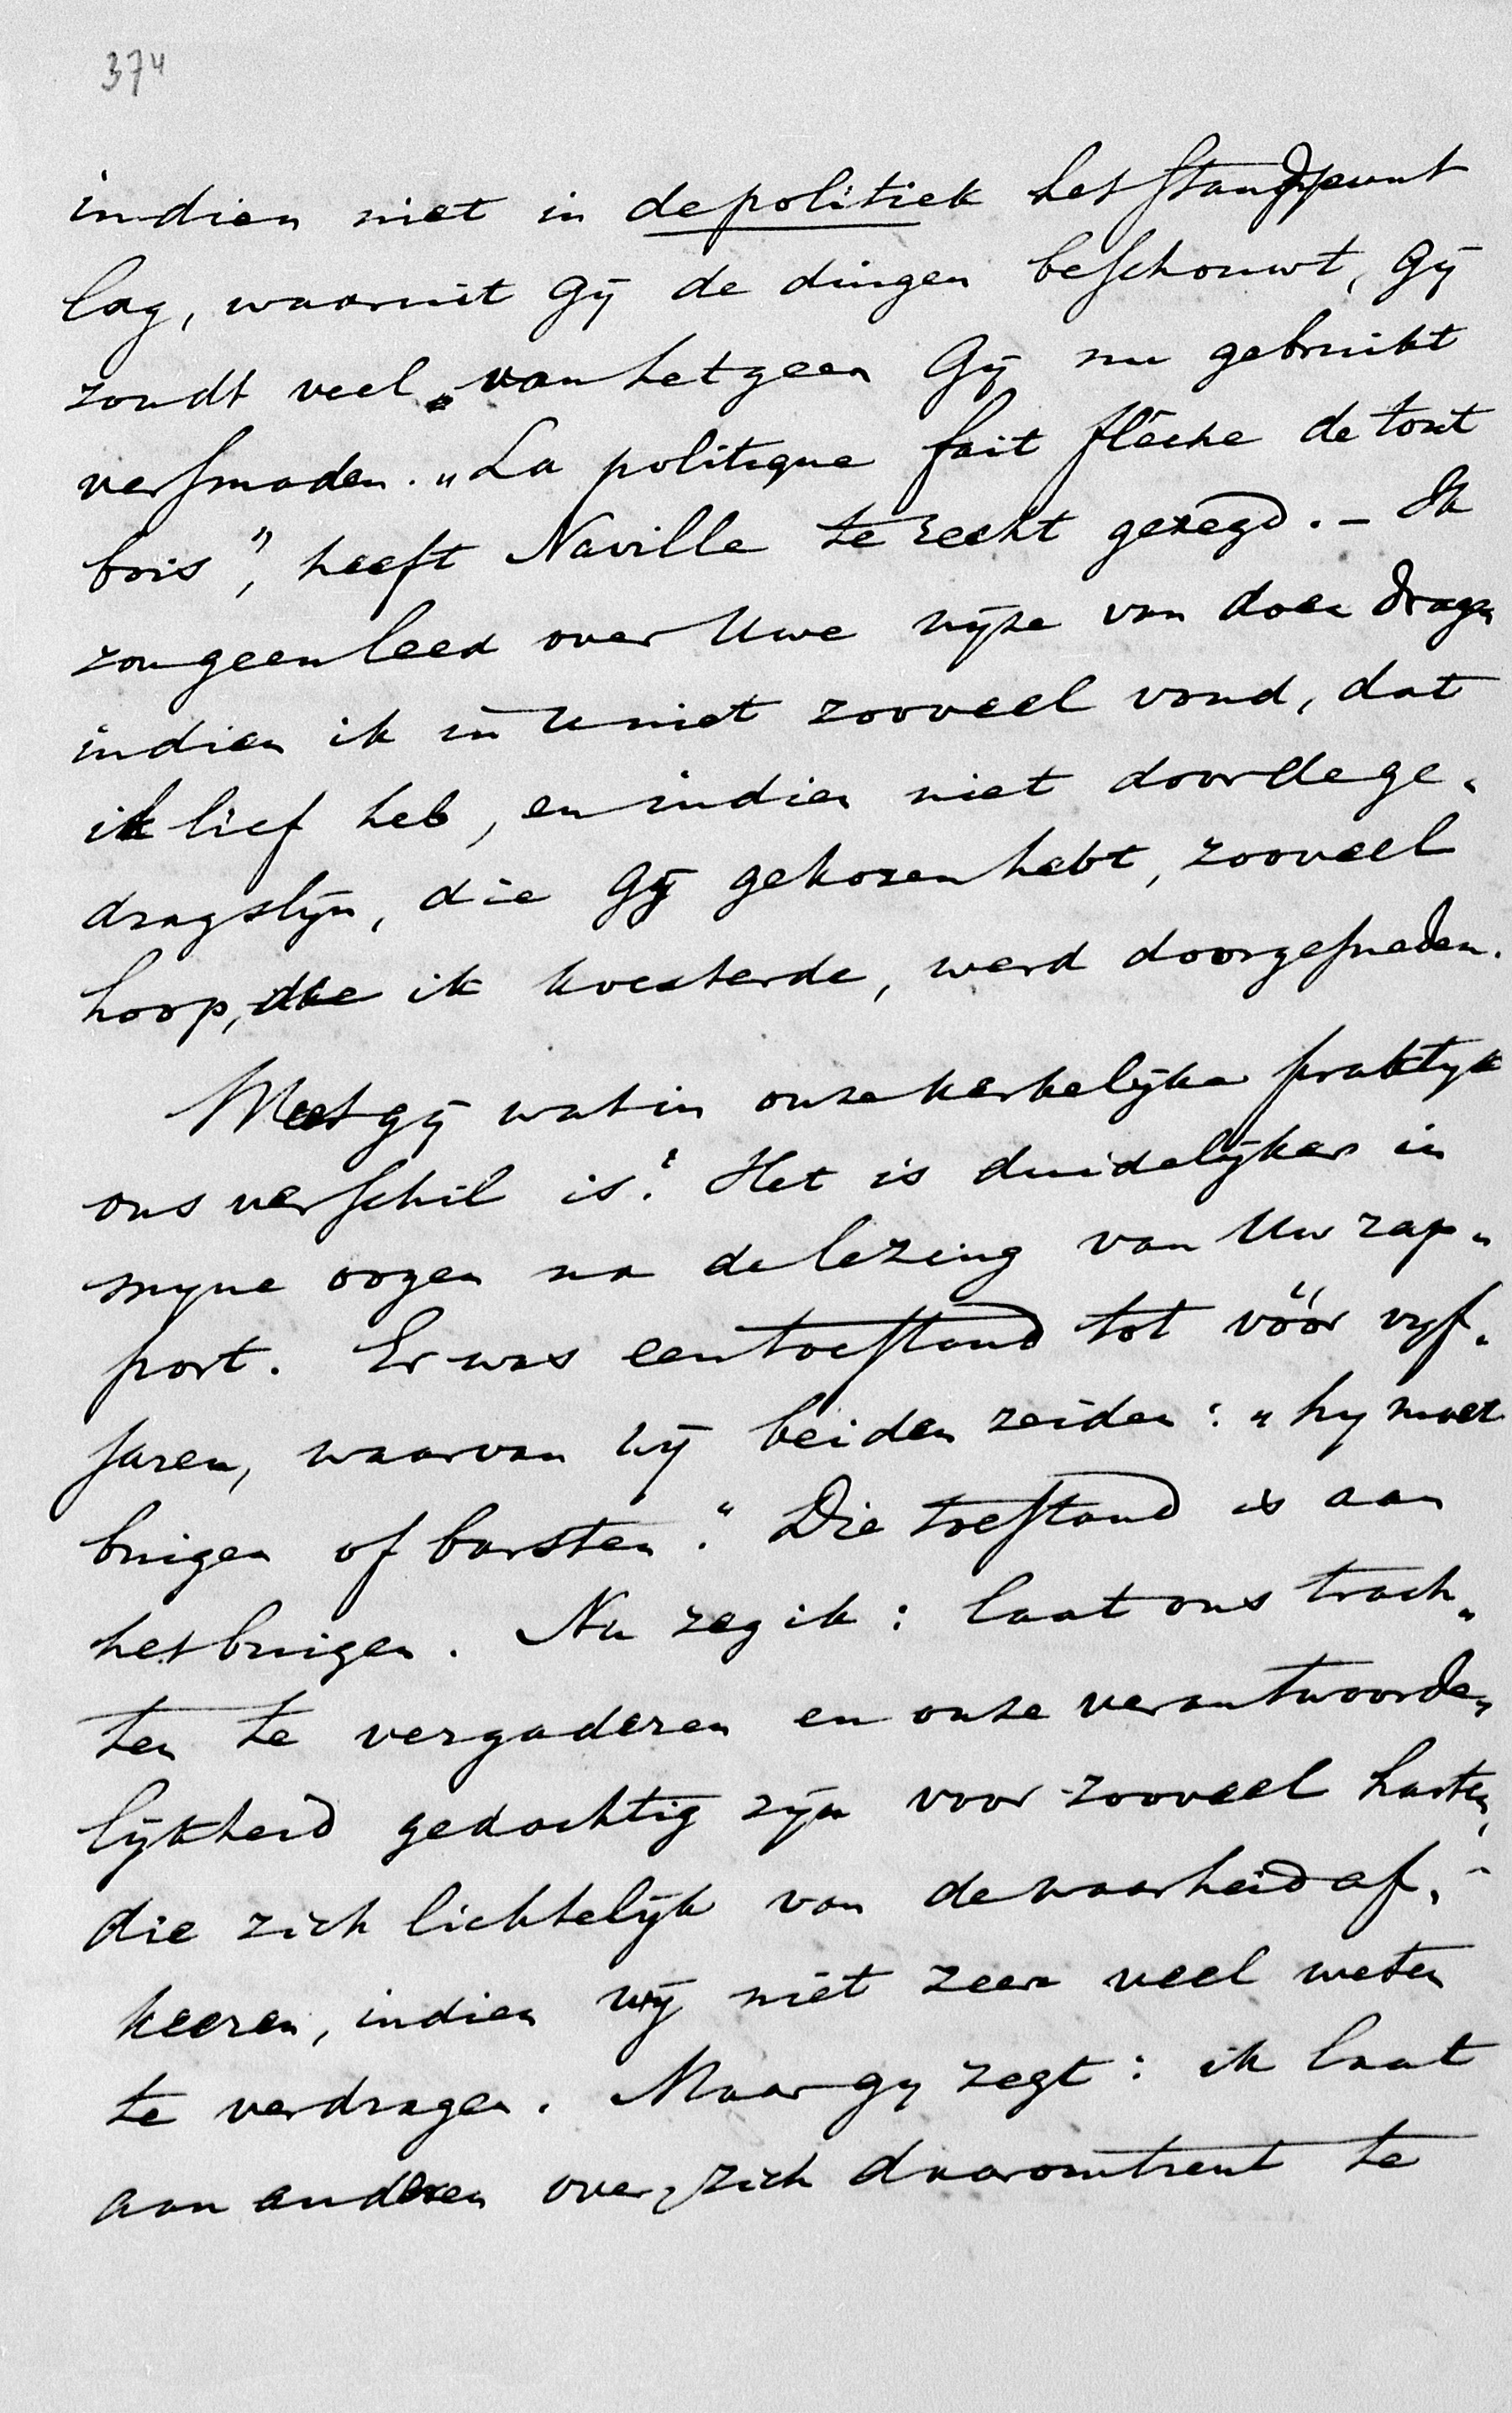 374
indien niet in de politiek het standpunt
lag, waaruit Gij de dingen beschouwt, Gij
zoudt veel van hetgeen Gij nu gebruikt
versmaden. „La politique fait flèche de tout
bois”, heeft Naville te recht gezegd. - Ik
zou geen leed over Uwe wijze van doen dragen
indien ik in U niet zooveel vond, dat
ik lief heb, en indien niet door de ge-
dragslijn, die Gij gekozen hebt, zooveel
hoop, die ik koesterde, werd doorgesneden.
Weet gij wat in onze kerkelijke praktijk
ons verschil is? Het is duidelijker in
mijne oogen na de lezing van Uw rap-
port. Er was een toestand tot vóór vijf
jaren, waarvan wij beiden zeiden: „hij moet
buigen of barsten.” Die toestand is aan
het buigen. Nu zeg ik: laat ons trach-
ten te vergaderen en onze verantwoorde-
lijkheid gedachtig zijn voor zooveel harten,
die zich lichtelijk van de waarheid af-
keeren, indien wij niet zeer veel weten
te verdragen. Maar gij zegt: ik laat
aan anderen over, zich daaromtrent te